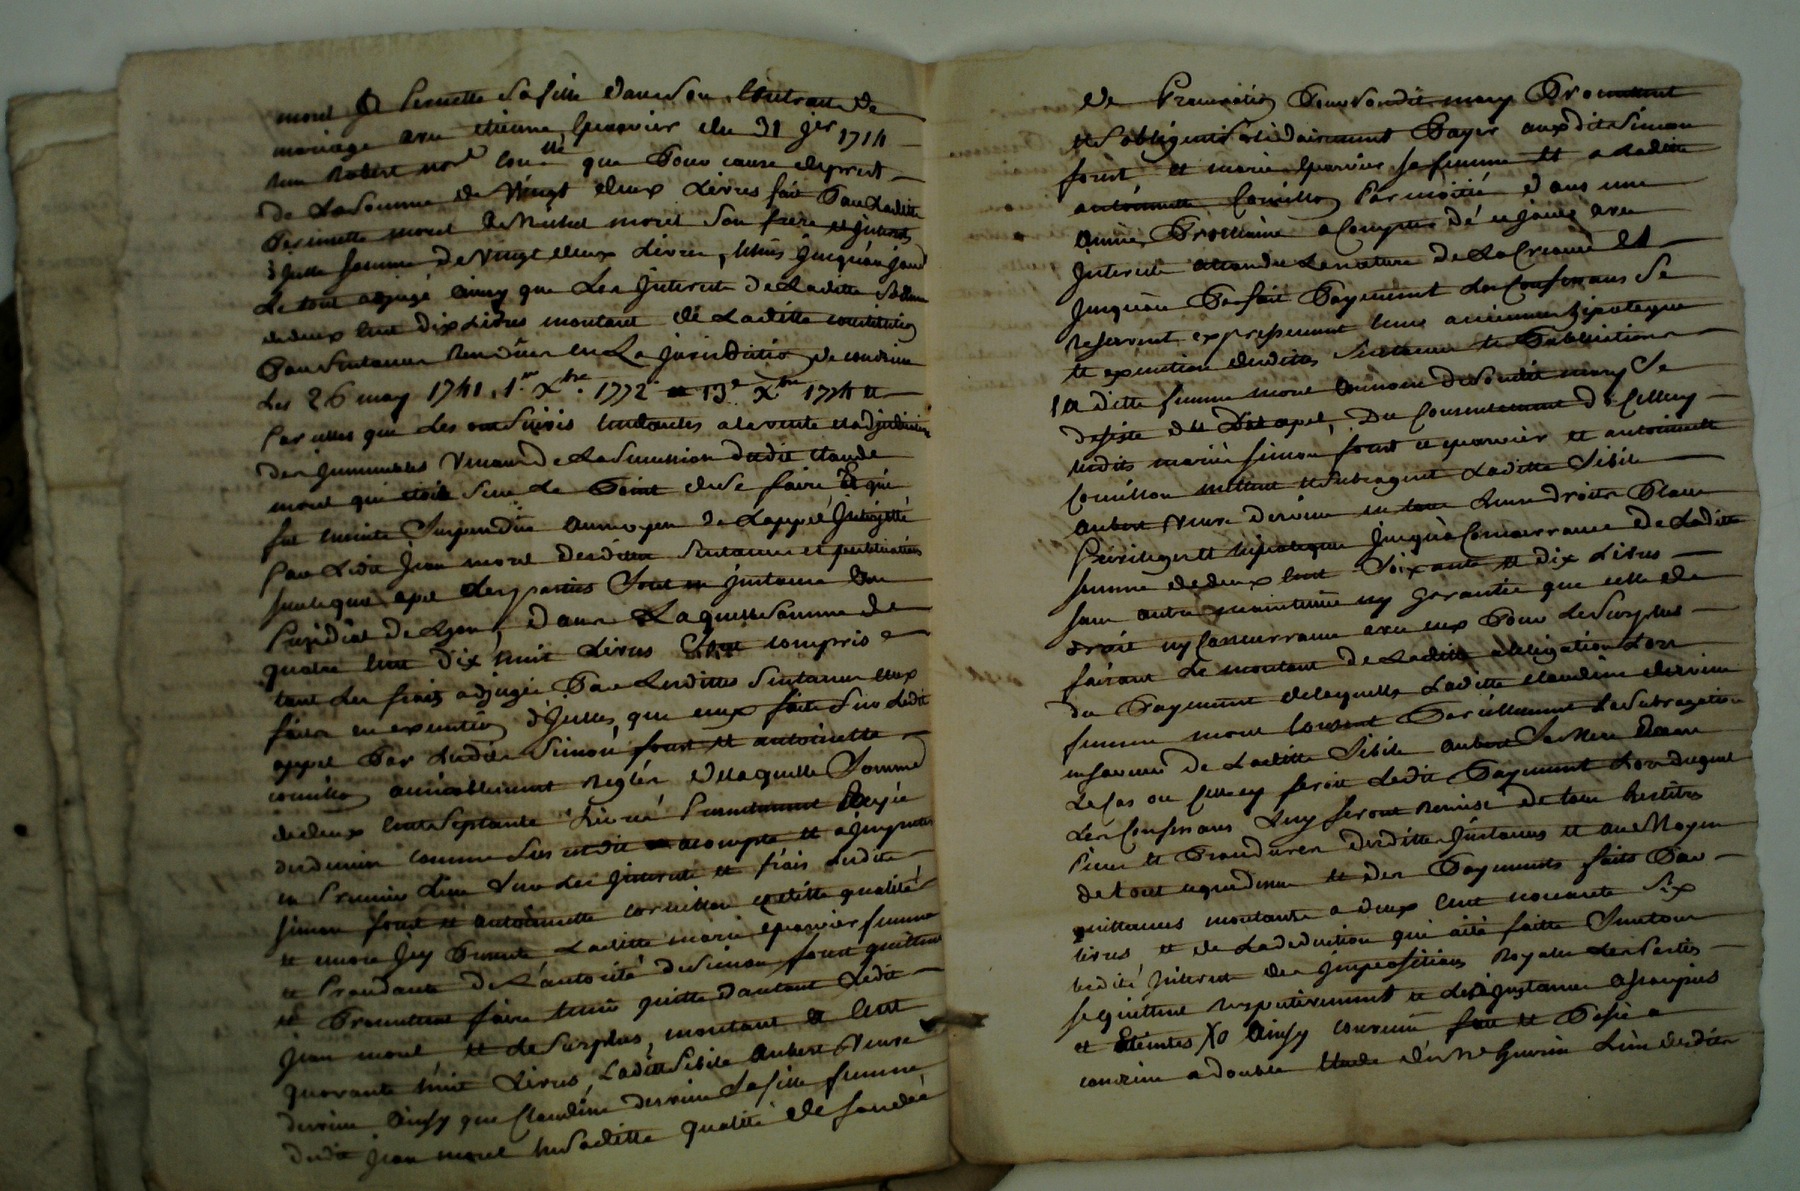 morel a pernette sa fille dans son contract de
mariage avec etienne epervier du 31 jer 1714
que pour cause de prest
de la somme de vingt deux livres fait par laditte
pernette morel a Michel morel son frere et interest
somme de vingt deux livres, echus jusqu'au jourd
le tout adjugé ainsy que les interest de laditte somme
de deux cent dix livres montant de laditte constitution
par sentences rendües en la jurisdiction de condrieu
les 26 may 1741, 1er Xbre 1772 et 13e Xbre 1774 et
par icelles que les tendantes a la vente et adjudication
des immeubles venant de la succession dudit claude
morel qui etoit sur le point de se faire et qui
fut ensuite suspendüe au moyen de l'appel interjetté
par ledit jean morel desdites sentences et publications
sur lequel apel les parties sont en instance en
presidial de Lyon, dans laquelle somme de
quatre cent dix huit livres sont compris
tant les frais adjugés par lesdittes sentences ceux
faits en execution d'jcelles, que ceux faits sur ledit
appel par ledit simon fourt et antoinette
cornillon amicablement reglés de laquelle somme
de deux cent septante livres presentement
dervieu comme sus est dit acompte et a jmputer
en premier lieu sur les jnterest et frais ledit
simon fourt et antoinette cornillon qualité
et encore jcy presente laditte marie epervier femme
et procedante de l'autorité de simon fourt quittent
et promettent faire tenir quitte d'autant ledit
jean morel, et le surplus, montant a cent
quarante huit livres, laditte sibile aubert veuve
dervieu ainsy que claudine dervieu sa fille femme
dudit jean morel en saditte qualité de fondée
de procuration pour sondit mary promettent
et s'obligent solidairement payer auxdits simon
fourt et marie epervier sa femme et a laditte
antoinette cornillon par moitié dans une
année prochaine a compter de ce jour avec
jnterest attendu la nature de la creance et
jusqu'au parfait payement les confessans se
reservent expressement leurs anciennes hipoteques
et execution desdittes sentences et publications
laditte femme morel au nom de sondit mary se
desiste dudit apel, du consentement d'icelluy
lesdits mariés simon fourt et epervier et antoinette
cornillon mettent et subrogent laditte sibile
aubert veuve dervieu en tous leurs droits place
privileges et hipoteque jusqu'a concurrance de laditte
somme de deux cent soixante et dix livres
sans autre maintenüe ny garantie que celle de
droit ny concurrance avec eux pour le surplus
faisant le montant de laditte obligation lors
du payement de laquelle laditte claudine dervieu
femme morel consent pareillement la subrogation
en faveur de laditte sibile aubert sa mere dans
le cas ou elle en feroit ledit payement lors duquel
les confessans luy feront remise de tous les titres
pieces et procedures desdittes jnstances et au moyen
de tout ce que dessus et des payements faits par
quittances montants a deux cent nonante six
livres, et de la deduction qui a été faitte sur tous
lesdits jnterest des jmpositions royales les parties
se quittent respectivement et les jnstances assoupies
et eteintes Xo ainsy convenu fait et passé a
condrieu a double etude de Me guerin l'un desdits